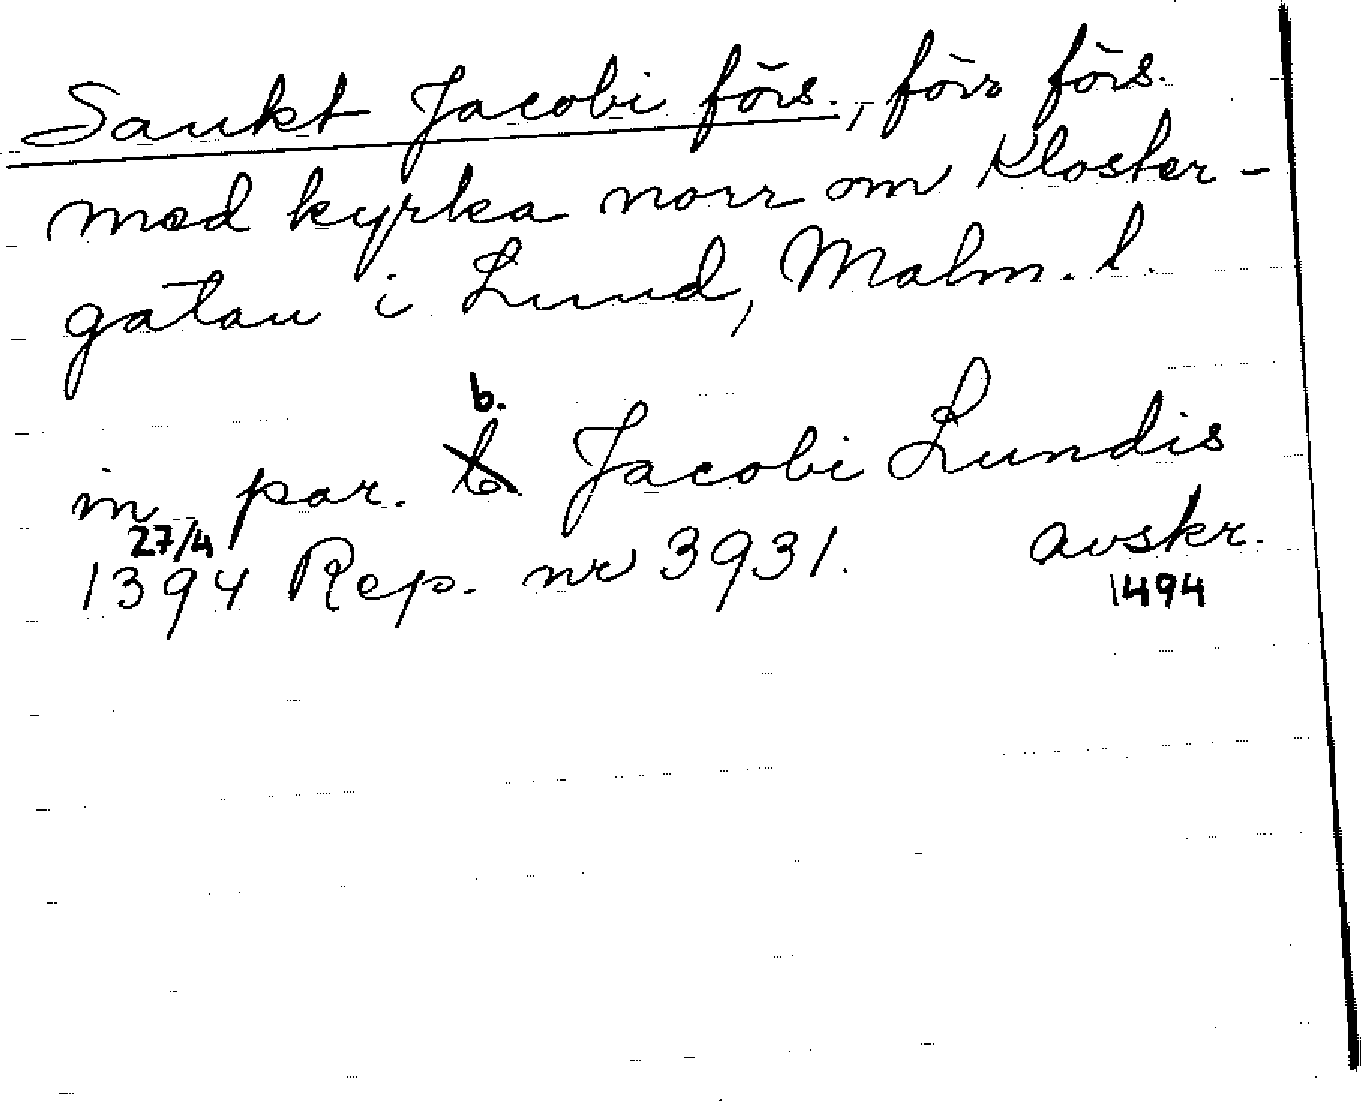 Sankt Jacobi förs., förr förs.
med kyrka norr om Kloster-
gatan i Lund, Malm. l.
b.
in par. b Jacobi Lundis
27/4
1394 Rep. nr 3931. avskr.
1494